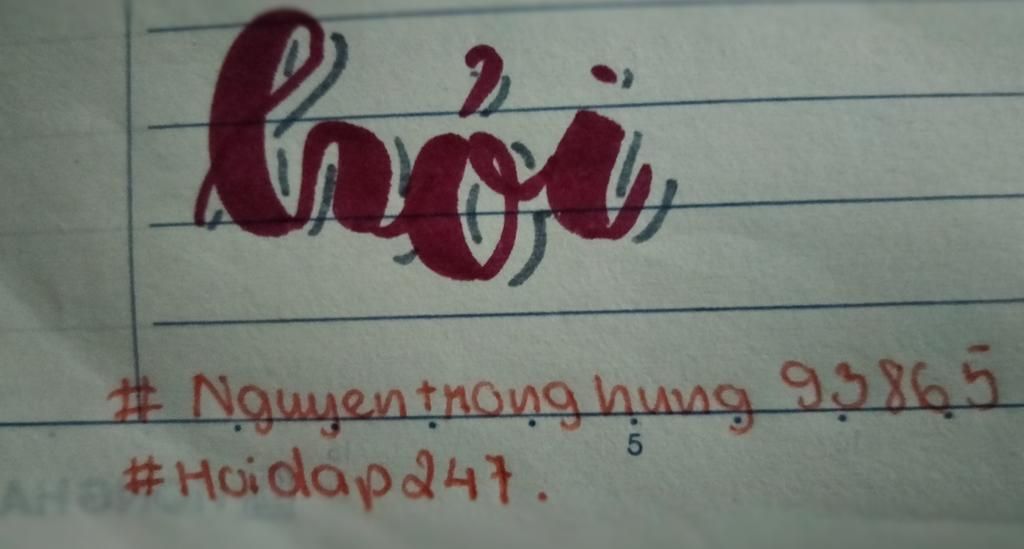 hỏi
# Nguyentronghung 93865
5
#Hoidap247.